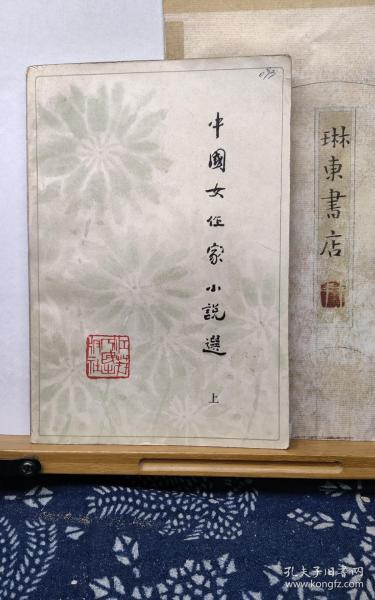 中國女作家小說選
上
琳東書店
孔夫子旧书网
www.kongfz.com